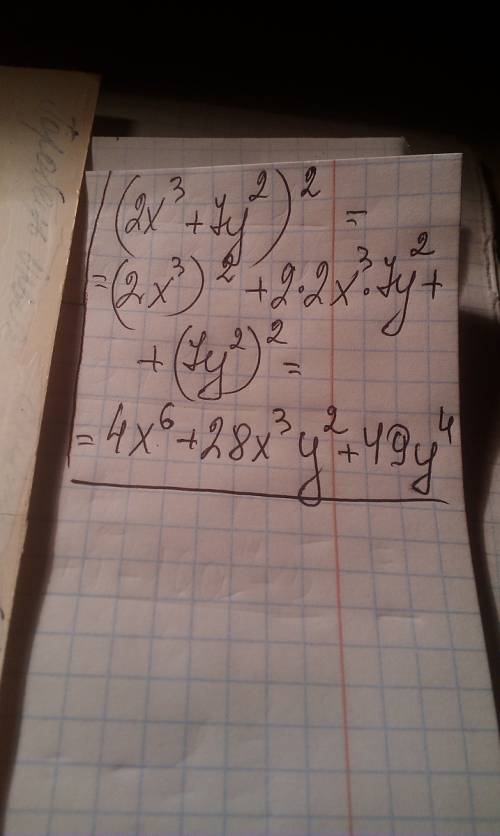 (2x³ + 7y²)² =
= (2x³)² + 2·2x³·7y² +
+ (7y²)² =
= 4x⁶ + 28x³y² + 49y⁴